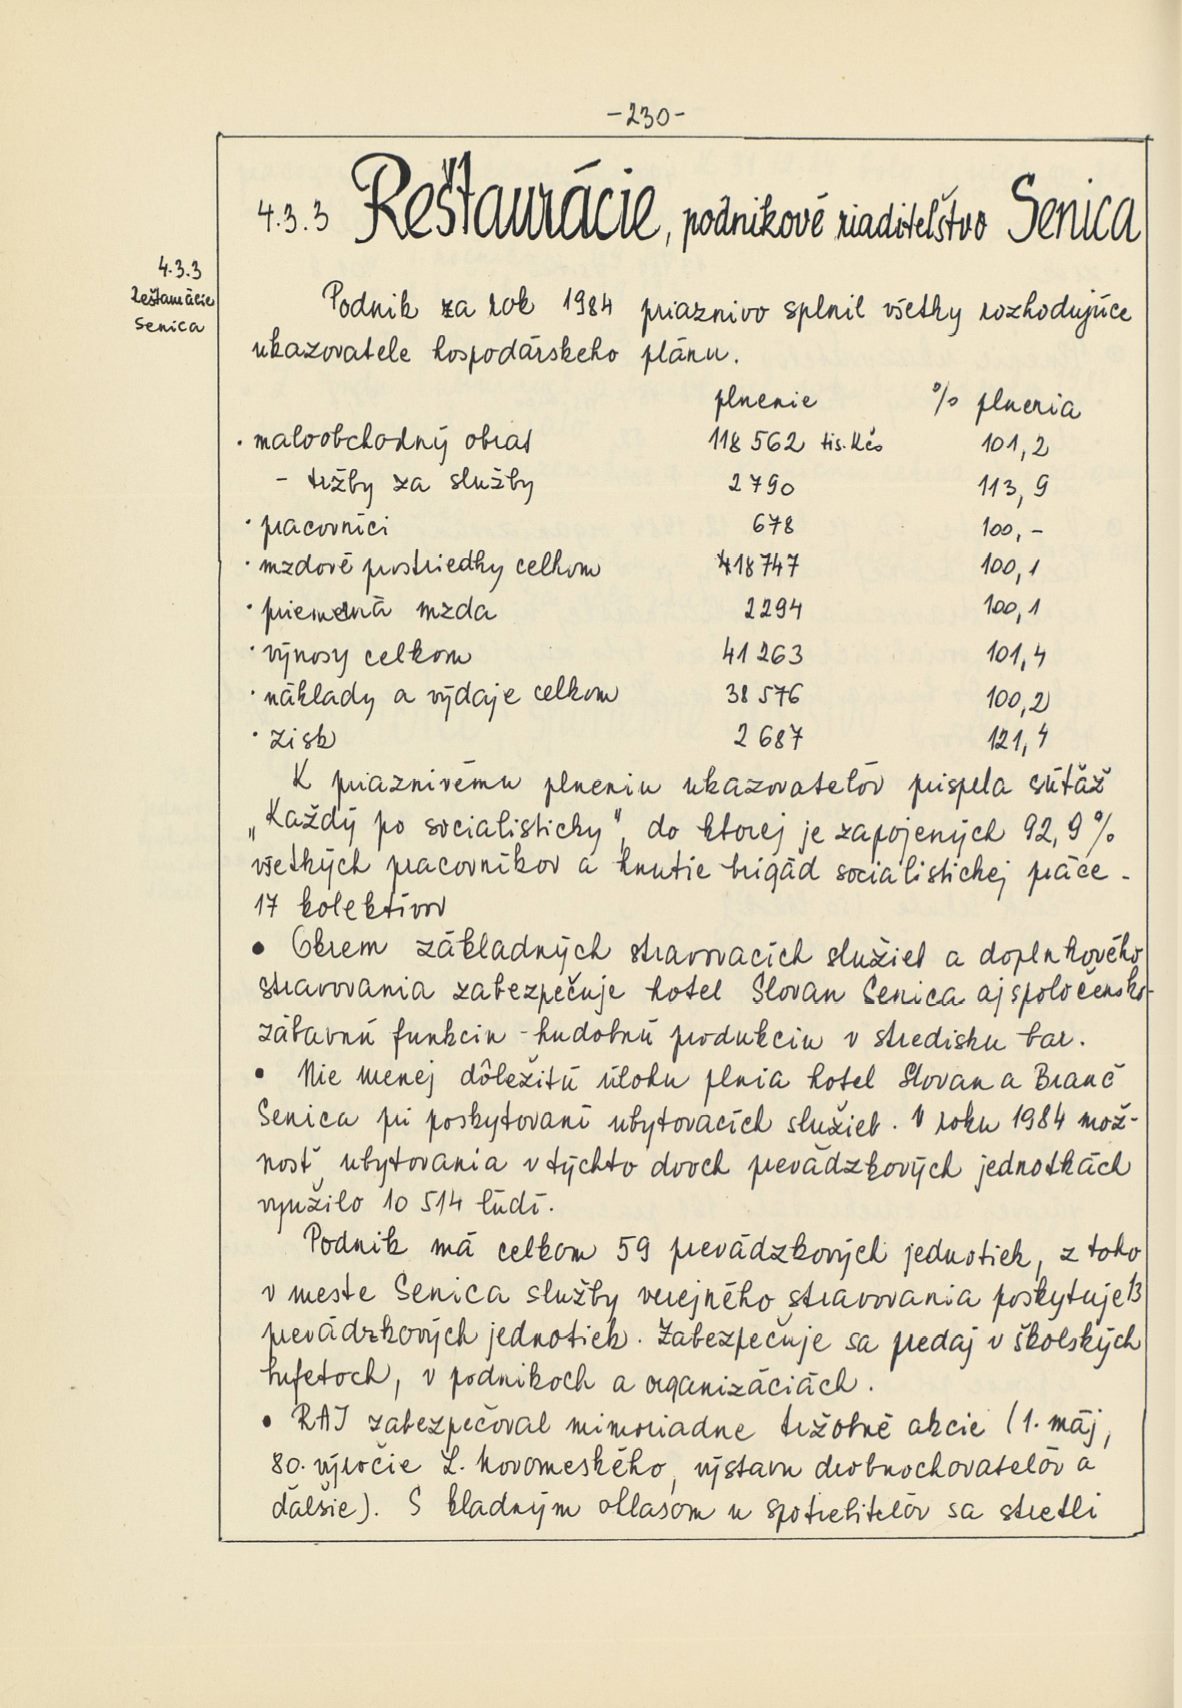 -230-
4.3.3 Reštaurácie, podnikové riaditeľstvo Senica
4.3.3
Reštaurácie
Senica
Podnik za rok 1984 priaznivo splnil všetky rozhodujúce
ukazovatele hospodárskeho plánu.
plnenie % plnenia
· maloobchodný obrat 118 562 tis. Kčs 101,2
- tržby za služby 2 790 113,9
· pracovníci 678 100,-
· mzdové postriedky celkom 18 747 100,1
· priemerná mzda 2294 100,1
· výnosy celkom 41 263 101,4
· náklady a výdaje celkom 38 576 100,2
· zisk 2 687 121,4
K priaznivému plneniu ukazovateľov prispela súťaž
„Každý po socialisticky", do ktorej je zapojených 92,9%
všetkých pracovníkov a hnutie brigád socialistickej práce -
17 kolektívov
• Okrem základných stravovacích služieb a doplnkového
stravovania zabezpečuje hotel Slovan Senica aj spoločensko-
zábavnú funkciu - hudobnú produkciu v stredisku bar.
• Nie menej dôležitú úlohu plnia hotel Slovan a Branč
Senica pri poskytovaní ubytovacích služieb. V roku 1984 mož-
nosť ubytovania v týchto dvoch prevádzkových jednotkách
využilo 10 514 ľudí.
Podnik má celkom 59 prevádzkových jednotiek, z toho
v meste Senica služby verejného stravovania poskytuje 13
prevádzkových jednotiek. Zabezpečuje sa predaj v školských
bufetoch, v podnikoch a organizáciách.
• RAJ zabezpečoval mimoriadne tržobné akcie (1. máj,
80. výročie L. Novomeského, výstavu drobnochovateľov a
ďalšie). S kladným ohlasom u spotrebiteľov sa stretli